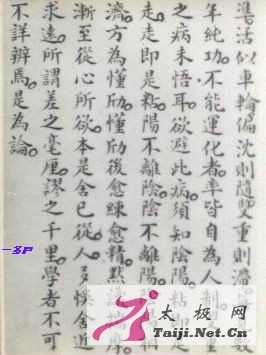 準活似車輪偏沈則隨雙重則滯數
年純功不能運化者率皆自為人制重
之病未悟耳欲避此病須知陰陽粘即是
走走即是粘陽不離陰陰不離陽
濟方為懂劤懂劤後愈練愈精默識揣摩
漸至從心所欲本是舍己從人多悞舍近
求遠所謂差之毫厘謬之千里學者不可
不詳辨焉是為論
太极网
Taiji.Net.Cn